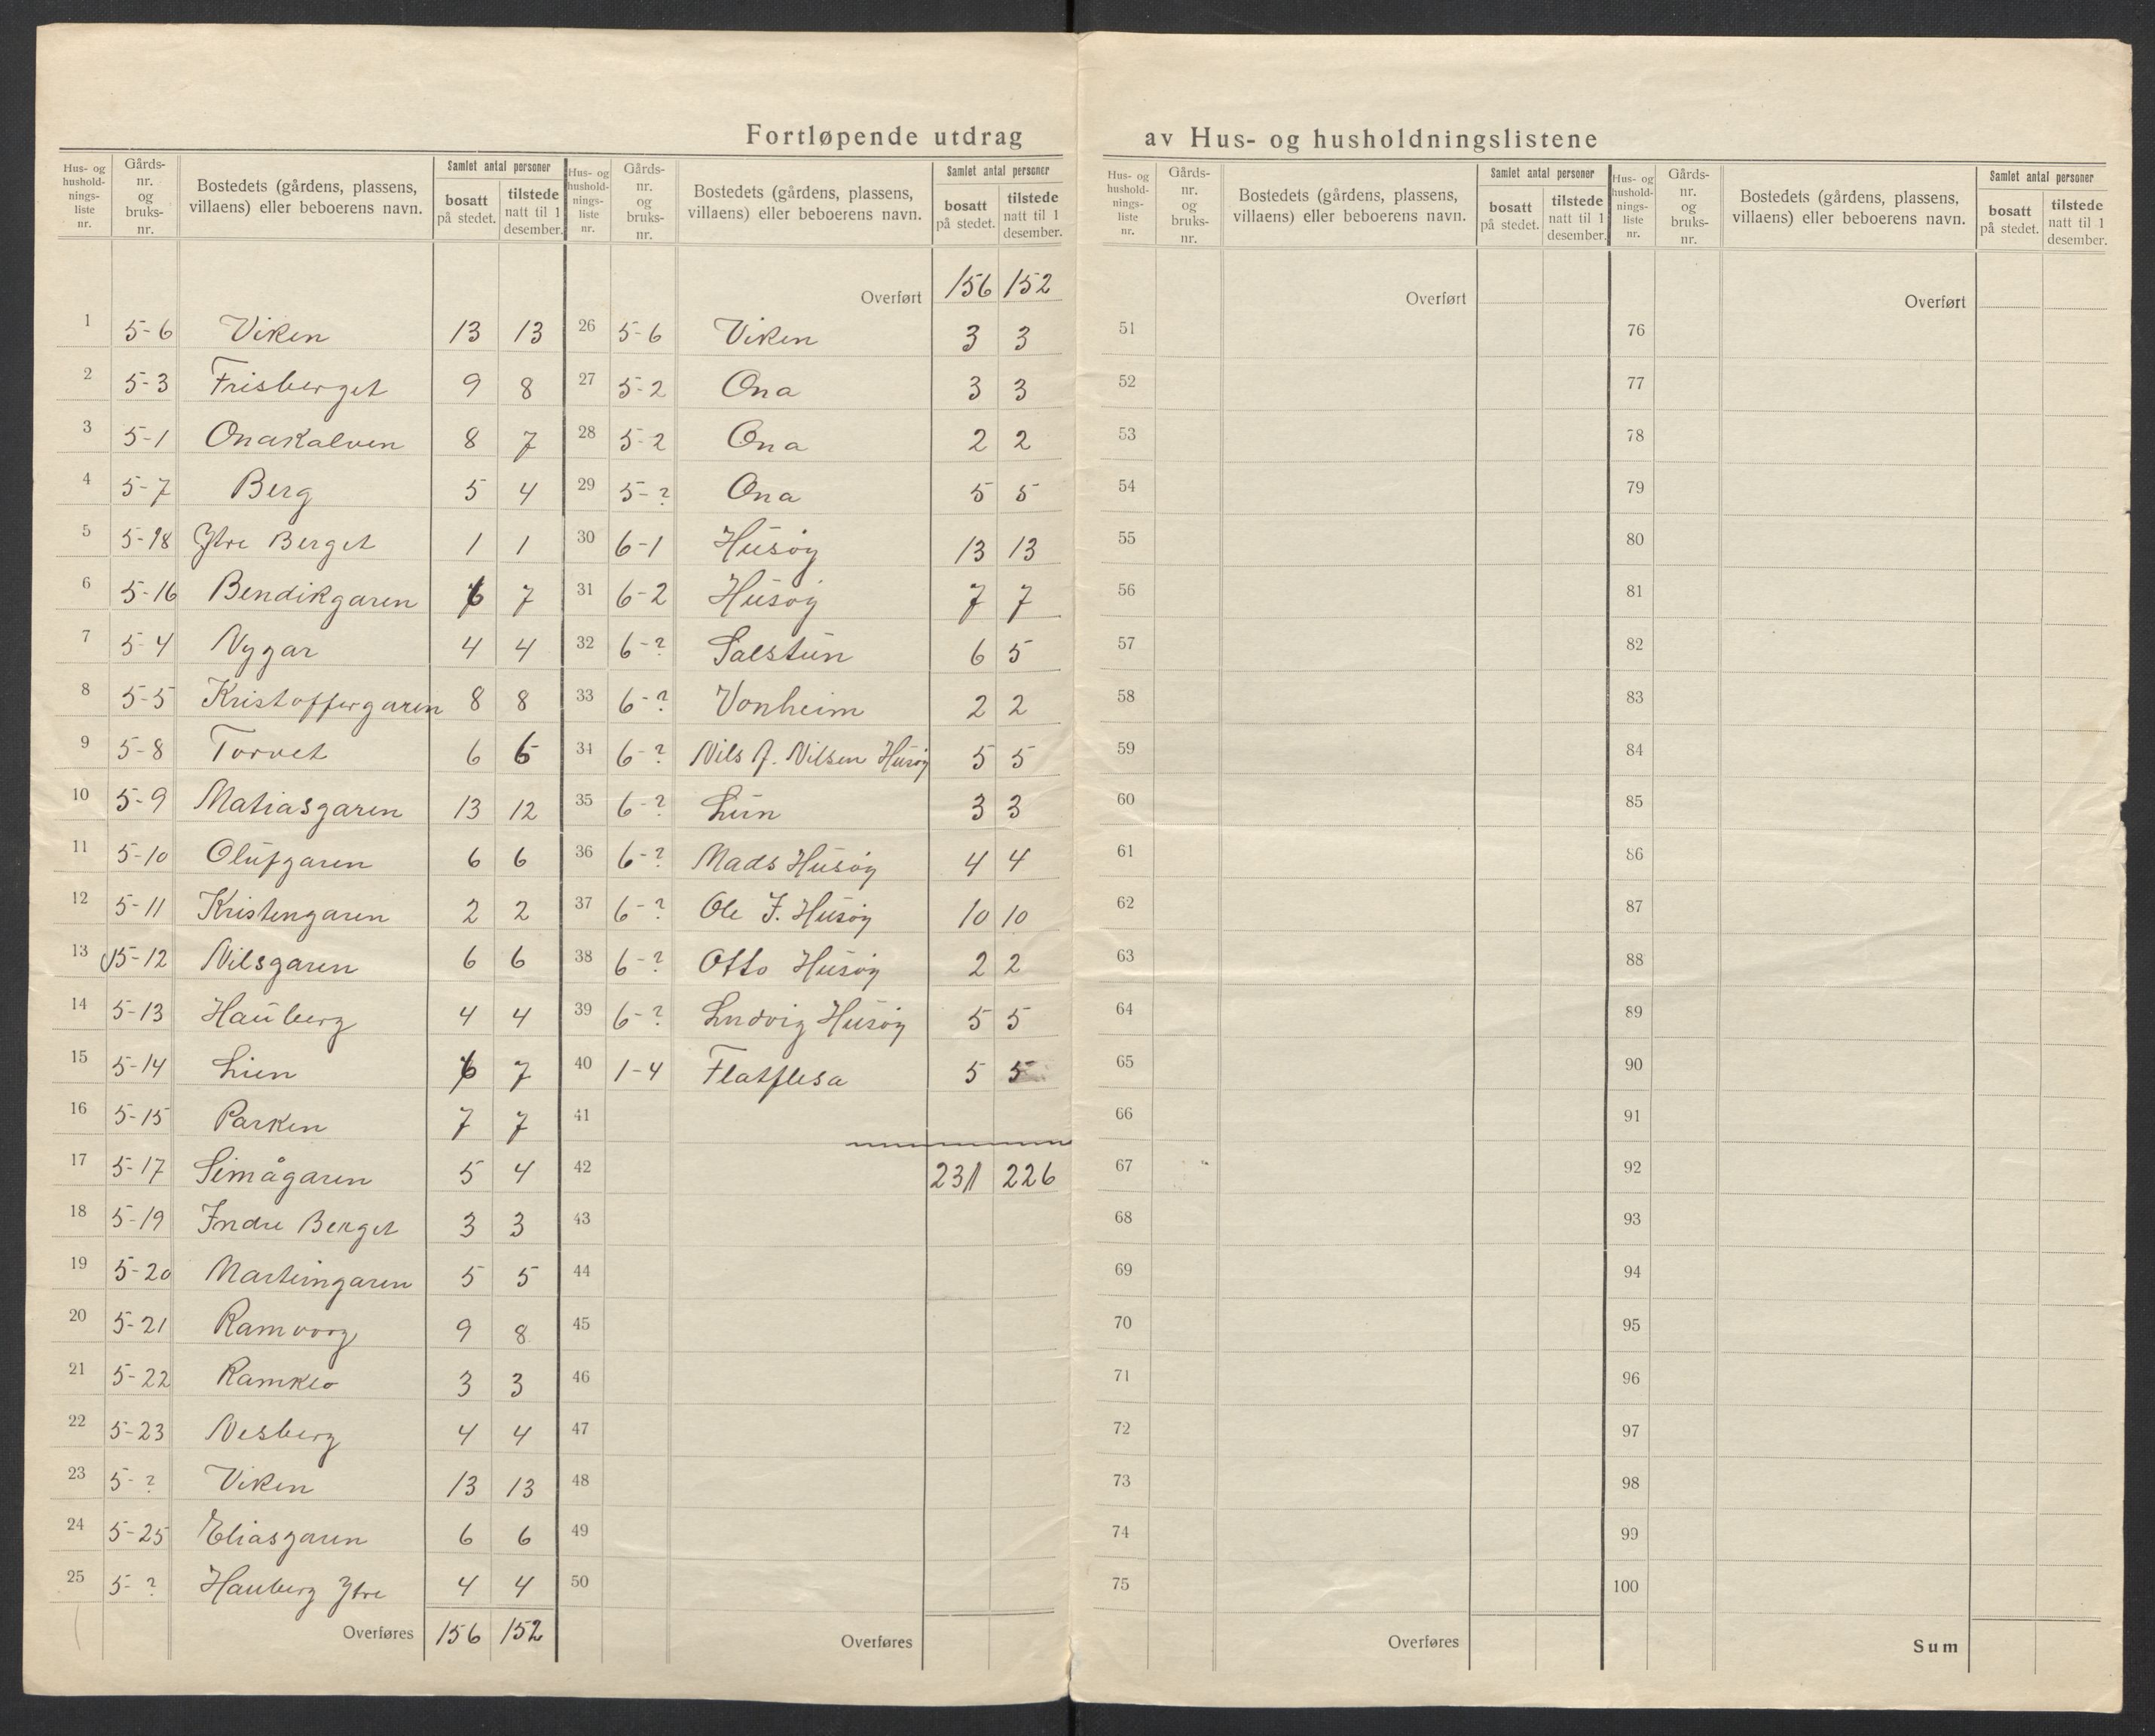 Fortløpende utdrag av Hus- og husholdningslistene
Hus- og hushold-nings-liste nr. | Gårds-nr. og bruks-nr. | Bostedets (gårdens, plassens, villaens) eller beboerens navn. | Samlet antal personer | bosatt på stedet. | tilstede natt til 1 desember.
1 5-6 Viken 13 13
2 5-3 Frisberget 9 8
3 5-1 Onakalven 8 7
4 5-7 Berg 5 4
5 5-18 Ytre Berget 1 1
6 5-16 Bendikgaren 6 7
7 5-4 Nygar 4 4
8 5-5 Kristoffergaren 8 8
9 5-8 Torvet 6 6
10 5-9 Matiasgaren 13 12
11 5-10 Olufgaren 6 6
12 5-11 Kristengaren 2 2
13 5-12 Nilsgaren 6 6
14 5-13 Hauberg 4 4
15 5-14 Lien 6 7
16 5-15 Parken 7 7
17 5-17 Simågaren 5 4
18 5-19 Indre Berget 3 3
19 5-20 Marteingaren 5 5
20 5-21 Ramvorg 9 8
21 5-22 Ramkleo 3 3
22 5-23 Nesberg 4 4
23 5-? Viken 13 13
24 5-25 Eliasgaren 6 6
25 5-? Hauberg Ytre 4 4
Overføres 156 152
Hus- og hushold-nings-liste nr. | Gårds-nr. og bruks-nr. | Bostedets (gårdens, plassens, villaens) eller beboerens navn. | Samlet antal personer | bosatt på stedet. | tilstede natt til 1 desember.
Overført 156 152
26 5-6 Viken 3 3
27 5-2 Ona 3 3
28 5-2 Ona 2 2
29 5-? Ona 5 5
30 6-1 Husøy 13 13
31 6-2 Husøy 7 7
32 6-? Salstun 6 5
33 6-? Vonheim 2 2
34 6-? Nils A. Nilsen Husøy 5 5
35 6-? Lun 3 3
36 6-? Mads Husøy 4 4
37 6-? Ole J. Husøy 10 10
38 6-? Otto Husøy 2 2
39 6-? Ludvig Husøy 5 5
40 1-4 Flatflesa 5 5
41
42 231 226
43
44
45
46
47
48
49
50
Overføres
Hus- og hushold-nings-liste nr. | Gårds-nr. og bruks-nr. | Bostedets (gårdens, plassens, villaens) eller beboerens navn. | Samlet antal personer | bosatt på stedet. | tilstede natt til 1 desember.
Overført
51
52
53
54
55
56
57
58
59
60
61
62
63
64
65
66
67
68
69
70
71
72
73
74
75
Overføres
Hus- og hushold-nings-liste nr. | Gårds-nr. og bruks-nr. | Bostedets (gårdens, plassens, villaens) eller beboerens navn. | Samlet antal personer | bosatt på stedet. | tilstede natt til 1 desember.
Overført
76
77
78
79
80
81
82
83
84
85
86
87
88
89
90
91
92
93
94
95
96
97
98
99
100
Sum